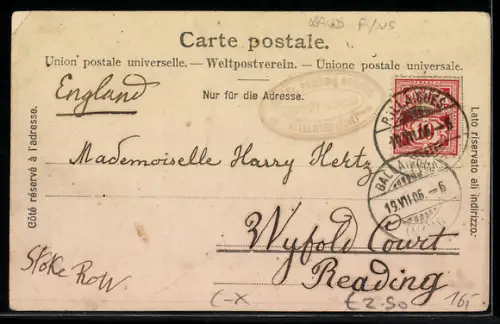 VAUD
Carte postale.
Union postale universelle. — Weltpostverein. — Unione postale universale.
England
Nur für die Adresse.
Côté réservé à l'adresse.
Lato riservato all indirizzo.
BALLAIGUES
Mademoiselle Harry Hertz
BALLAIGUES
19.VII.06.–6
Wyfold Court
Stoke Row
Reading
C-X
£2.50
16,-